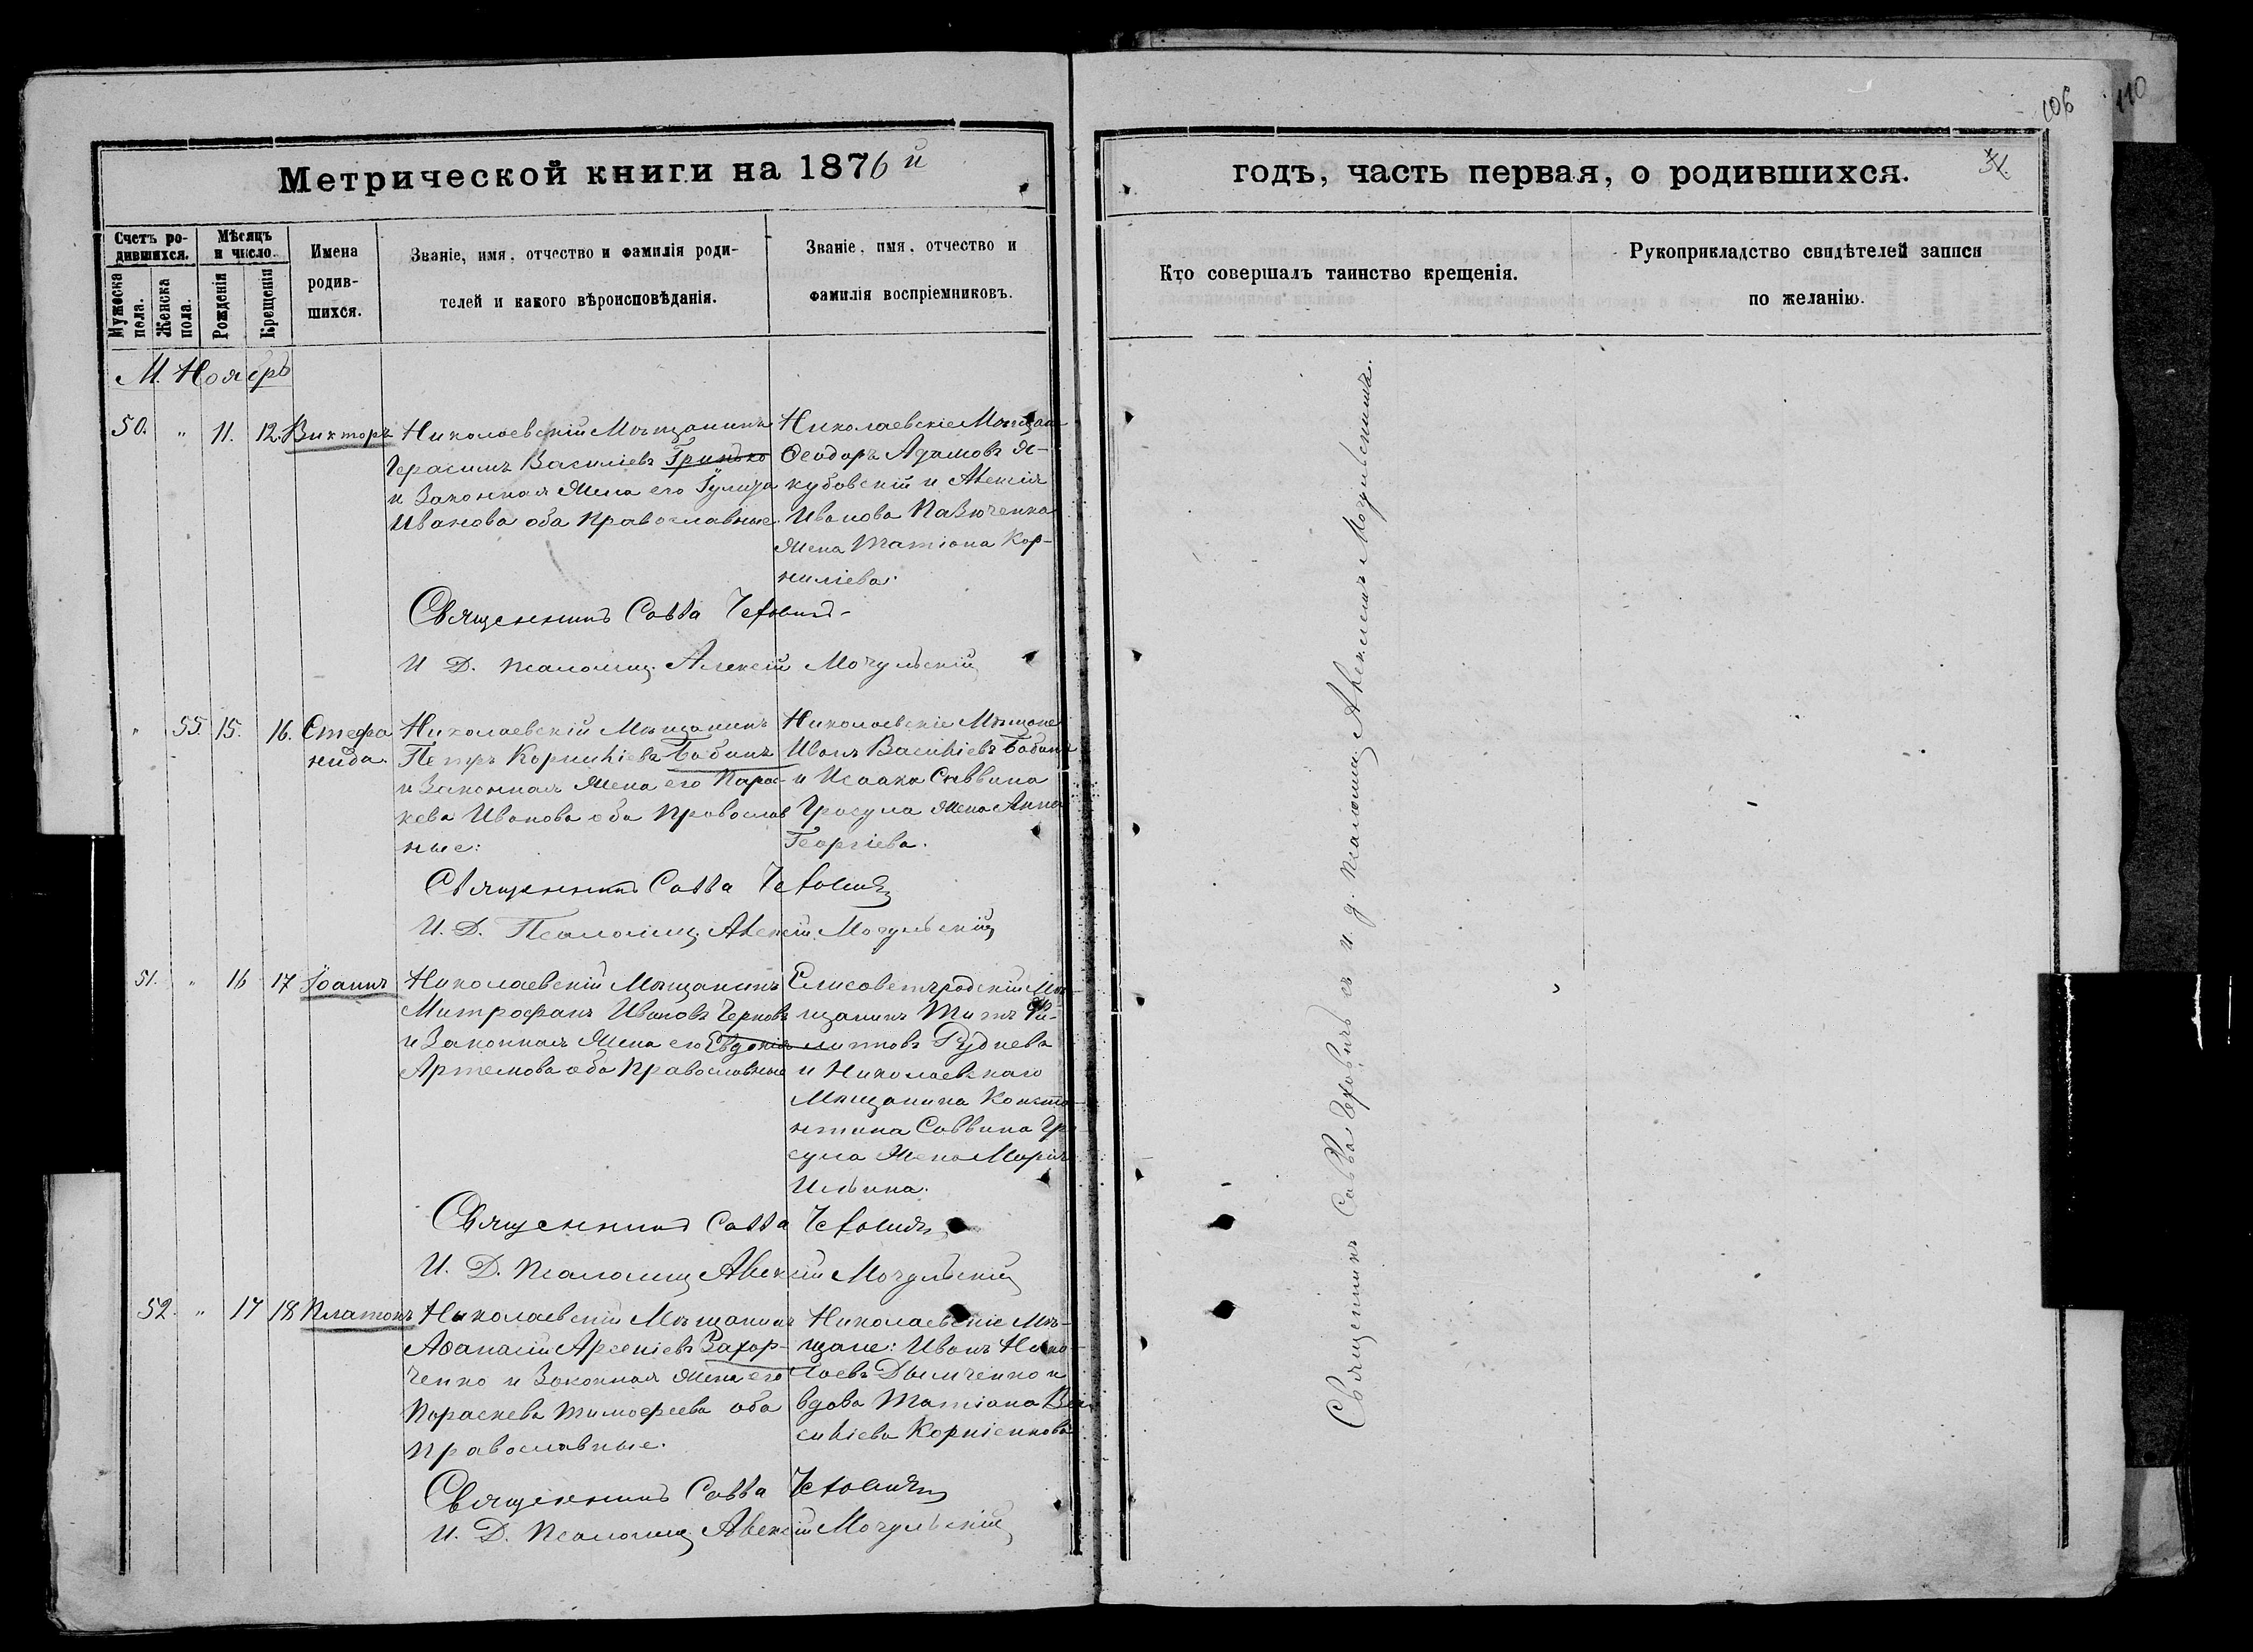 Метрической книги на 1876 й
Счетъ ро-
дившихся.
Мужеска
пола.
Женска
пола.
Мѣсяцъ
и число.
Рожденія
Крещенія
Имена
родив-
шихся.
Званіе, имя, отчество и фамилія роди-
телей и какого вѣроисповѣданія.
Званіе, имя, отчество и
фамилія воспріемниковъ.
М. Ноябрь
50. " 11. 12. Викторъ
Николаевскій Мѣщанинъ
Герасимъ Василіевъ Гринько
и Законная Жена его
Иванова оба Православные.
Николаевскіе
Ѳеодоръ Адамовъ Я-
кубовскій и
Иванова
Жена Татіана Кор-
ниліева.
Священникъ Савва
И Д. Псаломщ. Алексій Мочульскій
" 55. 15. 16. Стефа
нида.
Николаевскій Мѣщанинъ
Петръ Корниліевъ Бабинъ
и Законная Жена его Парас-
кева Иванова оба Православ
ные:
Николаевскіе Мѣщане
Иванъ Василіевъ Бабинъ
и Исаака Саввина
Гросула Жена Анна
Георгіева.
Священникъ Савва
И. Д. Псаломщ. Алексій Мочульскій
51. " 16 17 Іоаннъ
Николаевскій Мѣщанинъ
Митрофанъ Ивановъ Черновъ
и Законная Жена его Евдокія
Артемова оба Православные
Елисаветградскій Мѣ-
щанинъ Титъ Фи-
липовъ Рудневъ
и Николаевскаго
Мѣщанина Конста-
нтина Саввина Гро-
сула Жена Марія
Ильина.
Священникъ Савва
И. Д. Псаломщ Алексій Мочульскій
52. " 17 18 Платонъ
Николаевскій Мѣщанинъ
Аѳанасій Арсеніевъ Захор-
ченко и Законная Жена его
Параскева Тимофеева оба
Православные.
Николаевскіе Мѣ-
щане: Иванъ Нико-
лаевъ Дымченко и
вдова Татіана Ва-
силіева Корніенкова
Священникъ Савва
И. Д. Псаломщ Алексій Мочульскій
106
110
годъ, часть первая, о родившихся.
Кто совершалъ таинство крещенія.
Рукоприкладство свидѣтелей записи
по желанію.
Священникъ Савва съ и. д. Псаломщ Алексіемъ Мочульскимъ.